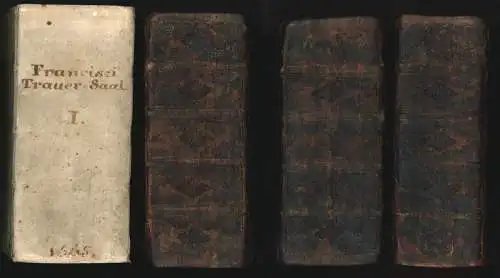 Francisci
Trauer-Saal
I.